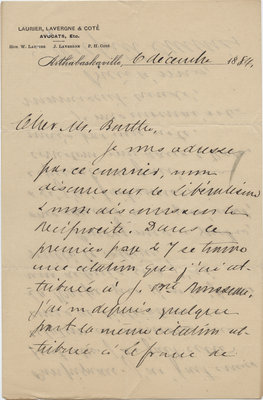 LAURIER, LAVERGNE & COTÉ
AVOCATS, Etc.
Hon. W. Laurier J. Lavergne P. H. Coté
Arthabaskaville, 6 décembre 1889.
Cher Mr. Barthe,
Je vous adresse
par ce courrier, mon
discours sur le Libéralisme
& mon discours sur la
Réciprocité. Dans ce
premier page 7 se trouve
une citation que j'ai at-
tribuée à J. Rousseau.
J'ai vu depuis quelque
part la même citation at-
tribuée à le franc de